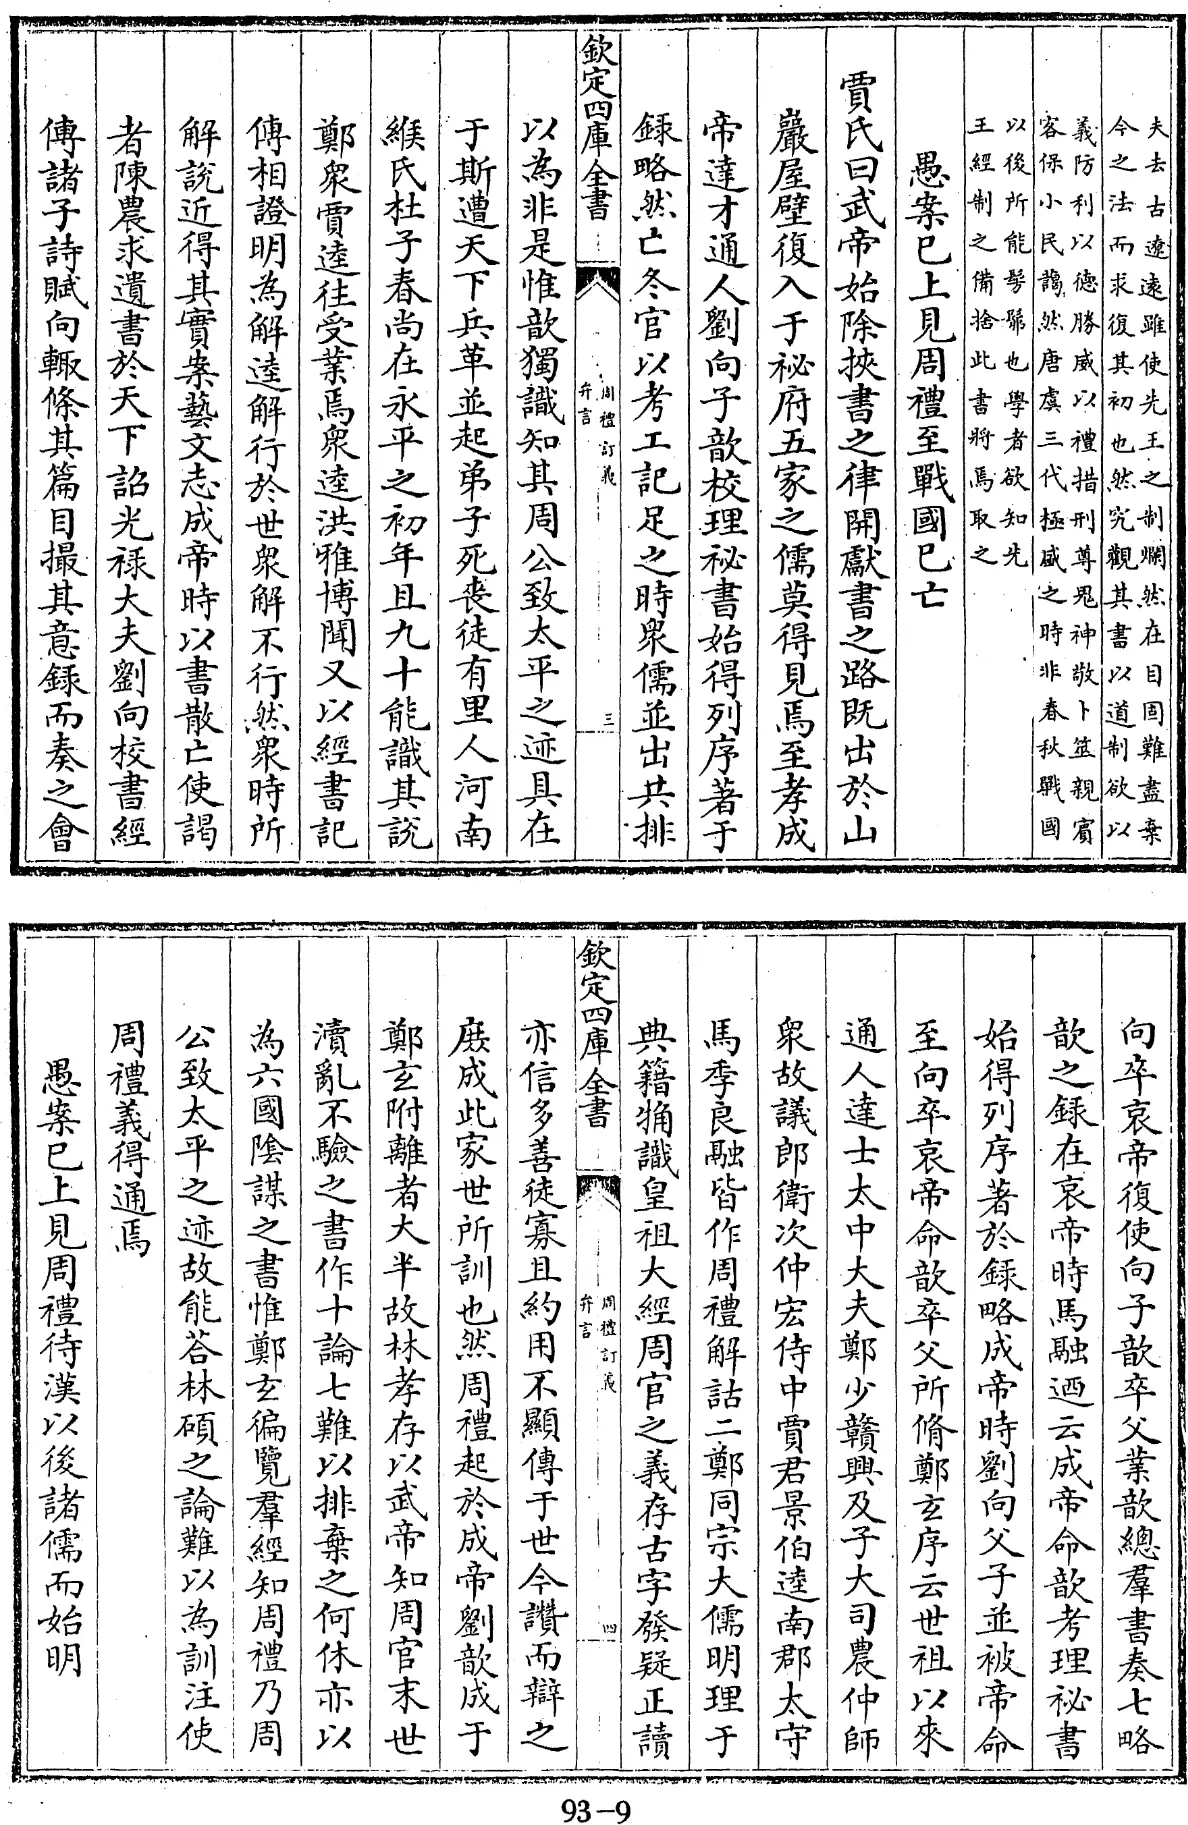 夫去古遼遠雖使先王之制爛然在目固難盡棄
今之法而求復其初也然究觀其書以道制欲以
義防利以德勝威以禮措刑尊鬼神敬卜筮親賓
客保小民藹然唐虞三代極盛之時非春秋戰國
以後所能髣髴也學者欲知先
王經制之備捨此書將焉取之
愚案已上見周禮至戰國已亡
賈氏曰武帝始除挾書之律開獻書之路既出於山
巖屋壁復入于祕府五家之儒莫得見焉至孝成
帝達才通人劉向子歆校理祕書始得列序著于
録略然亡冬官以考工記足之時衆儒並出共排
欽定四庫全書
周禮訂義
弁言
三
以為非是惟歆獨識知其周公致太平之迹具在
于斯遭天下兵革並起弟子死喪徒有里人河南
緱氏杜子春尚在永平之初年且九十能識其說
鄭衆賈逵往受業焉衆逵洪雅博聞又以經書記
傳相證明為解逵解行於世衆解不行然衆時所
解說近得其實案藝文志成帝時以書散亡使謁
者陳農求遺書於天下詔光禄大夫劉向校書經
傳諸子詩賦向輙條其篇目撮其意録而奏之會
向卒哀帝復使向子歆卒父業歆總羣書奏七略
歆之録在哀帝時馬融迺云成帝命歆考理祕書
始得列序著於録略成帝時劉向父子並被帝命
至向卒哀帝命歆卒父所脩鄭玄序云世祖以來
通人達士太中大夫鄭少贛興及子大司農仲師
衆故議郎衛次仲宏侍中賈君景伯逵南郡太守
馬季良融皆作周禮解詁二鄭同宗大儒明理于
典籍觕識皇祖大經周官之義存古字發疑正讀
欽定四庫全書
周禮訂義
弁言
四
亦信多善徒寡且約用不顯傳于世今讚而辯之
庻成此家世所訓也然周禮起於成帝劉歆成于
鄭玄附離者大半故林孝存以武帝知周官末世
瀆亂不驗之書作十論七難以排棄之何休亦以
為六國陰謀之書惟鄭玄徧覽羣經知周禮乃周
公致太平之迹故能答林碩之論難以為訓注使
周禮義得通焉
愚案已上見周禮待漢以後諸儒而始明
93-9